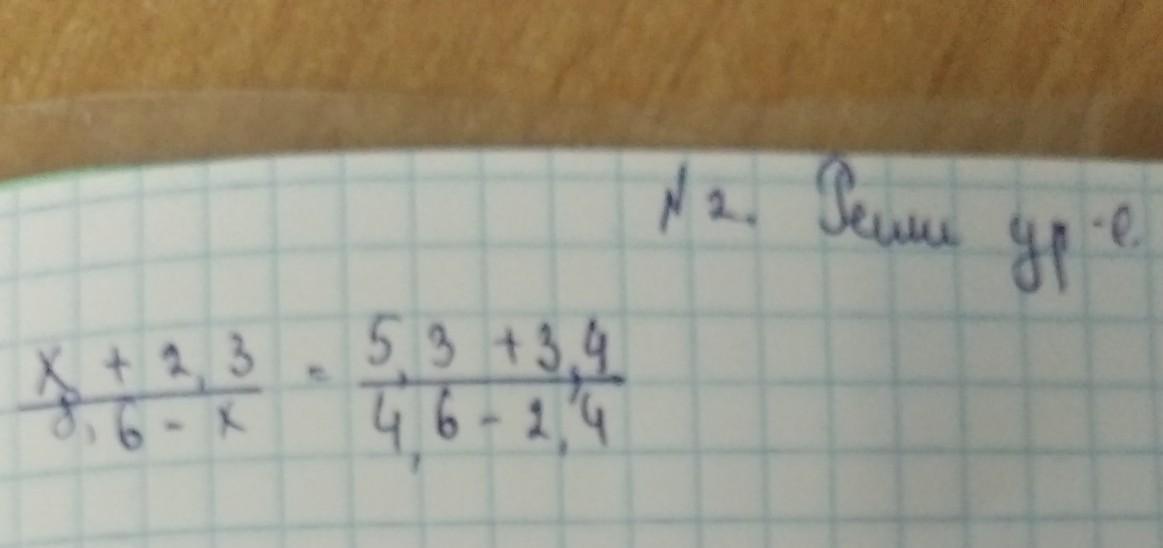 N 2. Реши ур-е.
x + 2,3 / 8,6 - x = 5,3 + 3,4 / 4,6 - 2,4